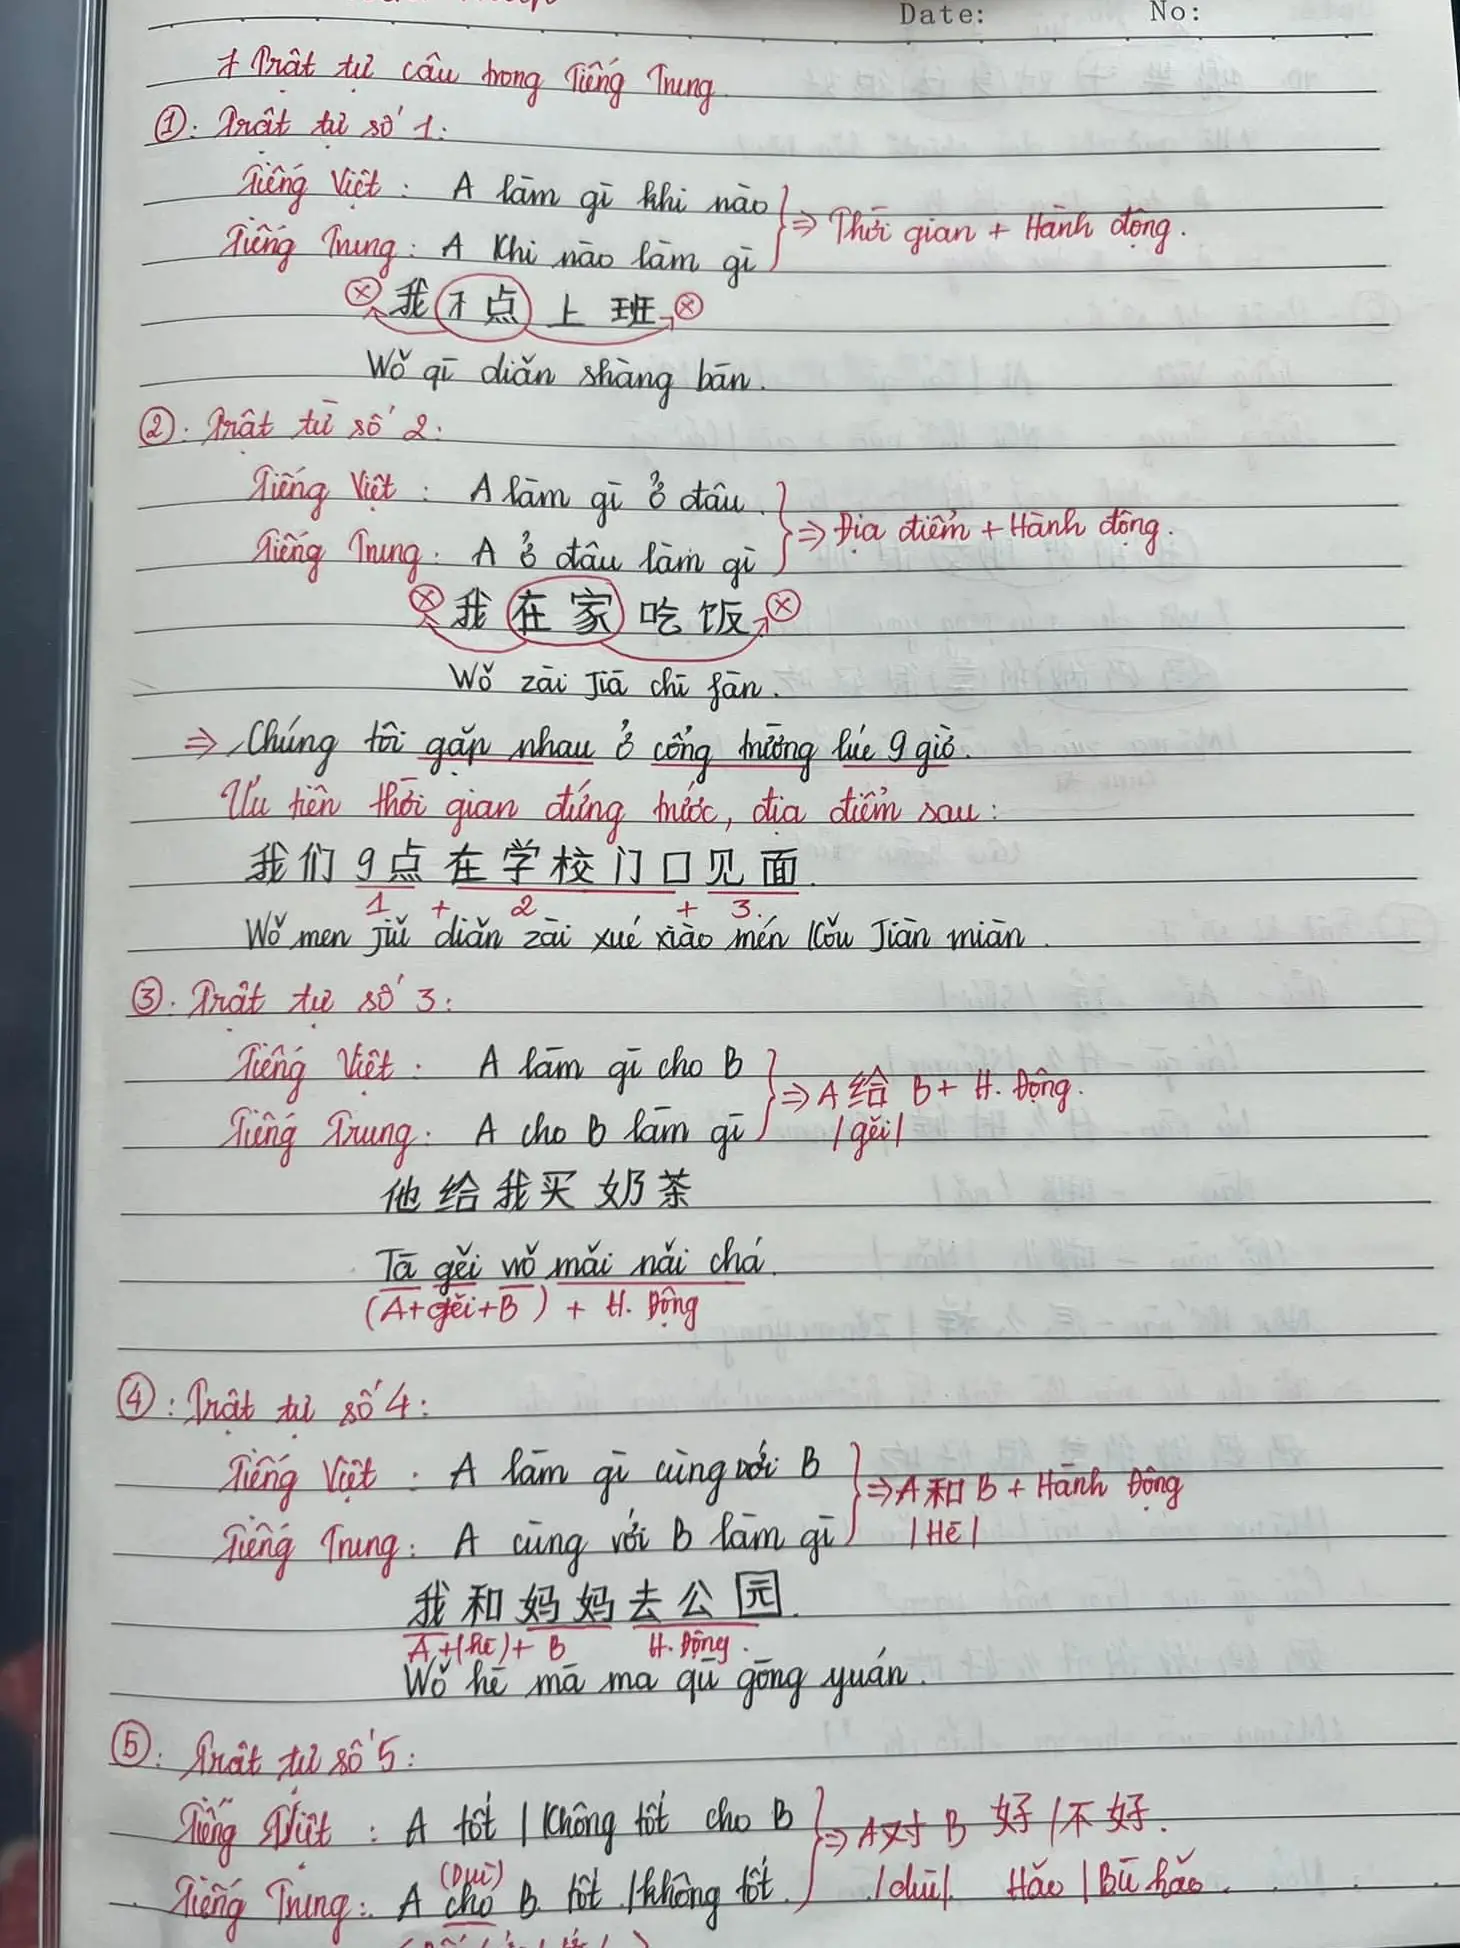 Date: No:
+ Trật tự câu trong Tiếng Trung
①: Trật tự số 1:
Tiếng Việt : A làm gì khi nào
Tiếng Trung : A Khi nào làm gì
⇒ Thời gian + Hành động.
我 7 点 上 班
Wǒ qī diǎn shàng bān.
②: Trật tự số 2:
Tiếng Việt : A làm gì ở đâu.
Tiếng Trung : A ở đâu làm gì
⇒ Địa điểm + Hành động.
我 在 家 吃 饭
Wǒ zài Jiā chī fàn.
⇒ Chúng tôi gặp nhau ở cổng trường lúc 9 giờ.
Ưu tiên thời gian đứng trước, địa điểm sau :
我们 9 点 在 学 校 门 口 见 面.
1 + 2 + 3.
Wǒ men jiǔ diǎn zài xué xiào mén Kǒu Jiàn miàn.
③. Trật tự số 3:
Tiếng Việt : A làm gì cho B
Tiếng Trung : A cho B làm gì
⇒ A 给 B + H. Động.
/gěi/
他 给 我 买 奶 茶
Tā gěi wǒ mǎi nǎi chá.
(A+gěi+B) + H. Động
④: Trật tự số 4:
Tiếng Việt : A làm gì cùng với B
Tiếng Trung : A cùng với B làm gì
⇒ A 和 B + Hành Động
|Hé|
我 和 妈 妈 去 公 园.
A +(hé)+ B H. Động.
Wǒ hé mā ma qù gōng yuán.
⑤: Trật tự số 5:
Tiếng Việt : A tốt | Không tốt cho B
⇒ A 对 B 好 / 不 好.
(Duì)
Tiếng Trung : A cho B tốt /không tốt.
/duì/. Hǎo | Bù hǎo.